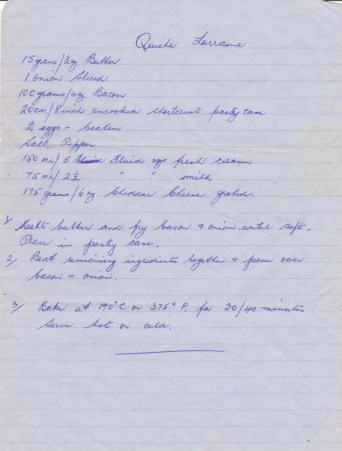 Quiche Lorraine
15 grams/½ oz Butter
1 Onion Sliced
100 grams/4 oz Bacon
20cm/8 inch uncooked shortcrust pastry case
2 eggs - beaten
Salt, Pepper
150 mls/5 fluid ozs fresh cream
75 mls/2½ " " milk
175 grams/6 oz Cheddar Cheese grated.
1/ Melt butter and fry bacon + onion until soft.
Place in pastry case.
2/ Beat remaining ingredients together + pour over
bacon + onion.
3/ Bake at 190°C or 375° F. for 30/40 minutes
Serve hot or cold.